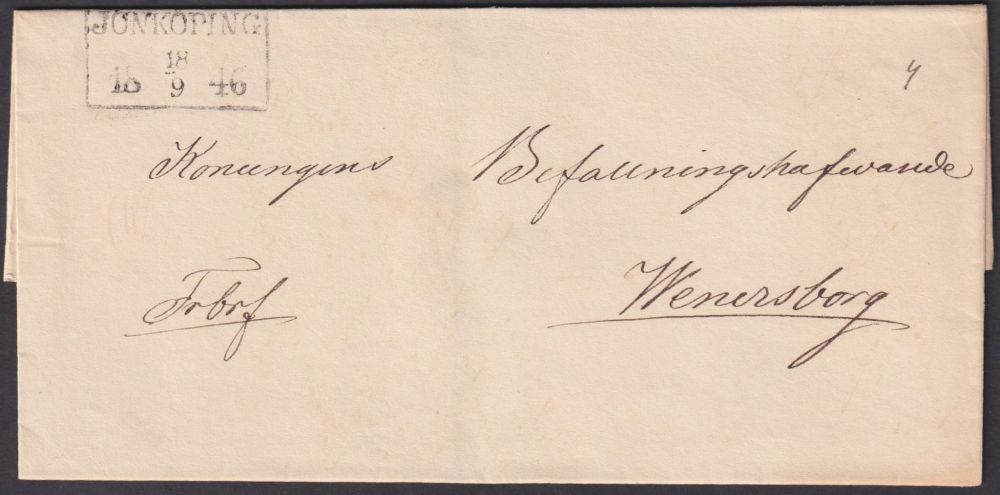 JÖNKÖPING
18 18/9 46
4
Konungens Befallningshafwande
Frbrf Wenersborg